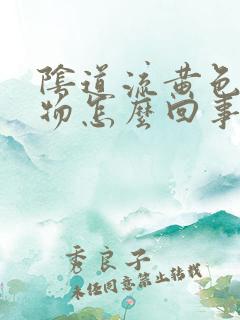 陰道流黃色
物怎麼回事
秀良子
未经同意禁止转载